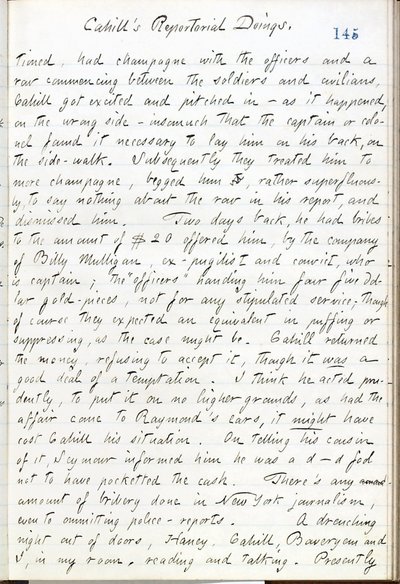 Cahill's Reportorial Doings.
145
tioned, had champagne with the officers and a
row commencing between the soldiers and civilians,
Cahill got excited and pitched in — as it happened,
on the wrong side — insomuch that the captain or colo-
nel found it necessary to lay him on his back, on
the side-walk. Subsequently they treated him to
more champagne, begged him, rather superfluous-
ly, to say nothing about the row in his report, and
dismissed him. Two days back, he had bribes
to the amount of $20 offered him, by the company
of Billy Mulligan, ex-pugilist and convict, who
is captain; the "officers" handing him four five dol-
lar gold-pieces, not for any stipulated service, though
of course they expected an equivalent in puffing or
suppressing, as the case might be. Cahill returned
the money, refusing to accept it, though it was a
good deal of a temptation. I think he acted pru-
dently, to put it on no higher grounds, as had the
affair come to Raymond's ears, it might have
cost Cahill his situation. On telling his cousin
of it, Seymour informed him he was a d—d fool
not to have pocketted the cash. There's any
amount of bribery done in New York journalism,
even to ommitting police-reports. A drenching
night out of doors, Haney, Cahill, Boweryem and
I, in my room, reading and talking. Presently